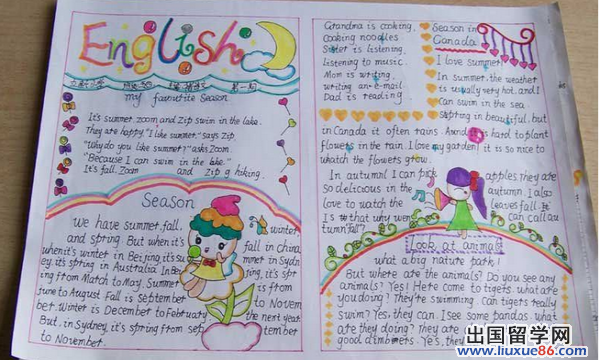 English
第一期
my favourite season
It's summer. Zoom and Zip swim in the lake.
They are happy. "I like summer," says Zip
"Why do you like summer?" asks Zoom.
"Because I can swim in the lake."
It's fall, Zoom and Zip g hiking.
Season
We have summer, fall, winter,
and spring. But when it's fall in China,
when it's winter in Beijing, it's su mmer in Sydn
ey, it's spring in Australia. In Bei jing, it's spr
ing from Match to May. Summer is from
June to August Fall is September to Novem
ber. Winter is December to February the next year.
But, in Sydney, it's spring from Sep tember
to November.
Grandma is cooking.
Cooking noodles
Sister is listening.
Listening to music.
Mom is writing.
writing an e-mail.
Dad is reading.
Season in
Canada
I love summer!
In summer, the weather
is usually very hot, and I
Can swim in the sea.
Spring in beautiful, but
in Canada it often rains. And is hard to plant
flowers in the rain. I love my garden, it is so nice to
whatch the flowers grow.
In autumn I can pick apples they are
so delicious in the autumn. I also
love to watch the leaves fall. It
Is that why we can call au
tumn fall?
Look at animals
what a big nature park!
But where are the animals? Do you see any
animals? Yes! Here come to tigers. what are
you doing? They're swimming. Can tigers really
swim? Yes, they can. I See some pandas. what
are they doing? They are
good climbers. Yes, they
出国留学网
www.liuxue86.com